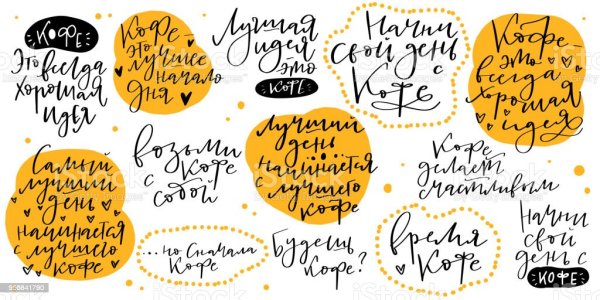 КОФЕ
Это всегда
хорошая
идея
Кофе -
это
лучшее
начало
дня
Лучшая
идея
это
КОФЕ
Начни
свой день
с
Кофе
Кофе
это
всегда
хорошая
идея
Самый
лучший
день
начинается
с лучшего
кофе
возьми
кофе
с собой
Лучший
день
начинается
с лучшего
кофе
Кофе
делает
счастливым
...но сначала
кофе
Будешь
кофе?
время
кофе
Начни
свой
день с
КОФЕ
iStock